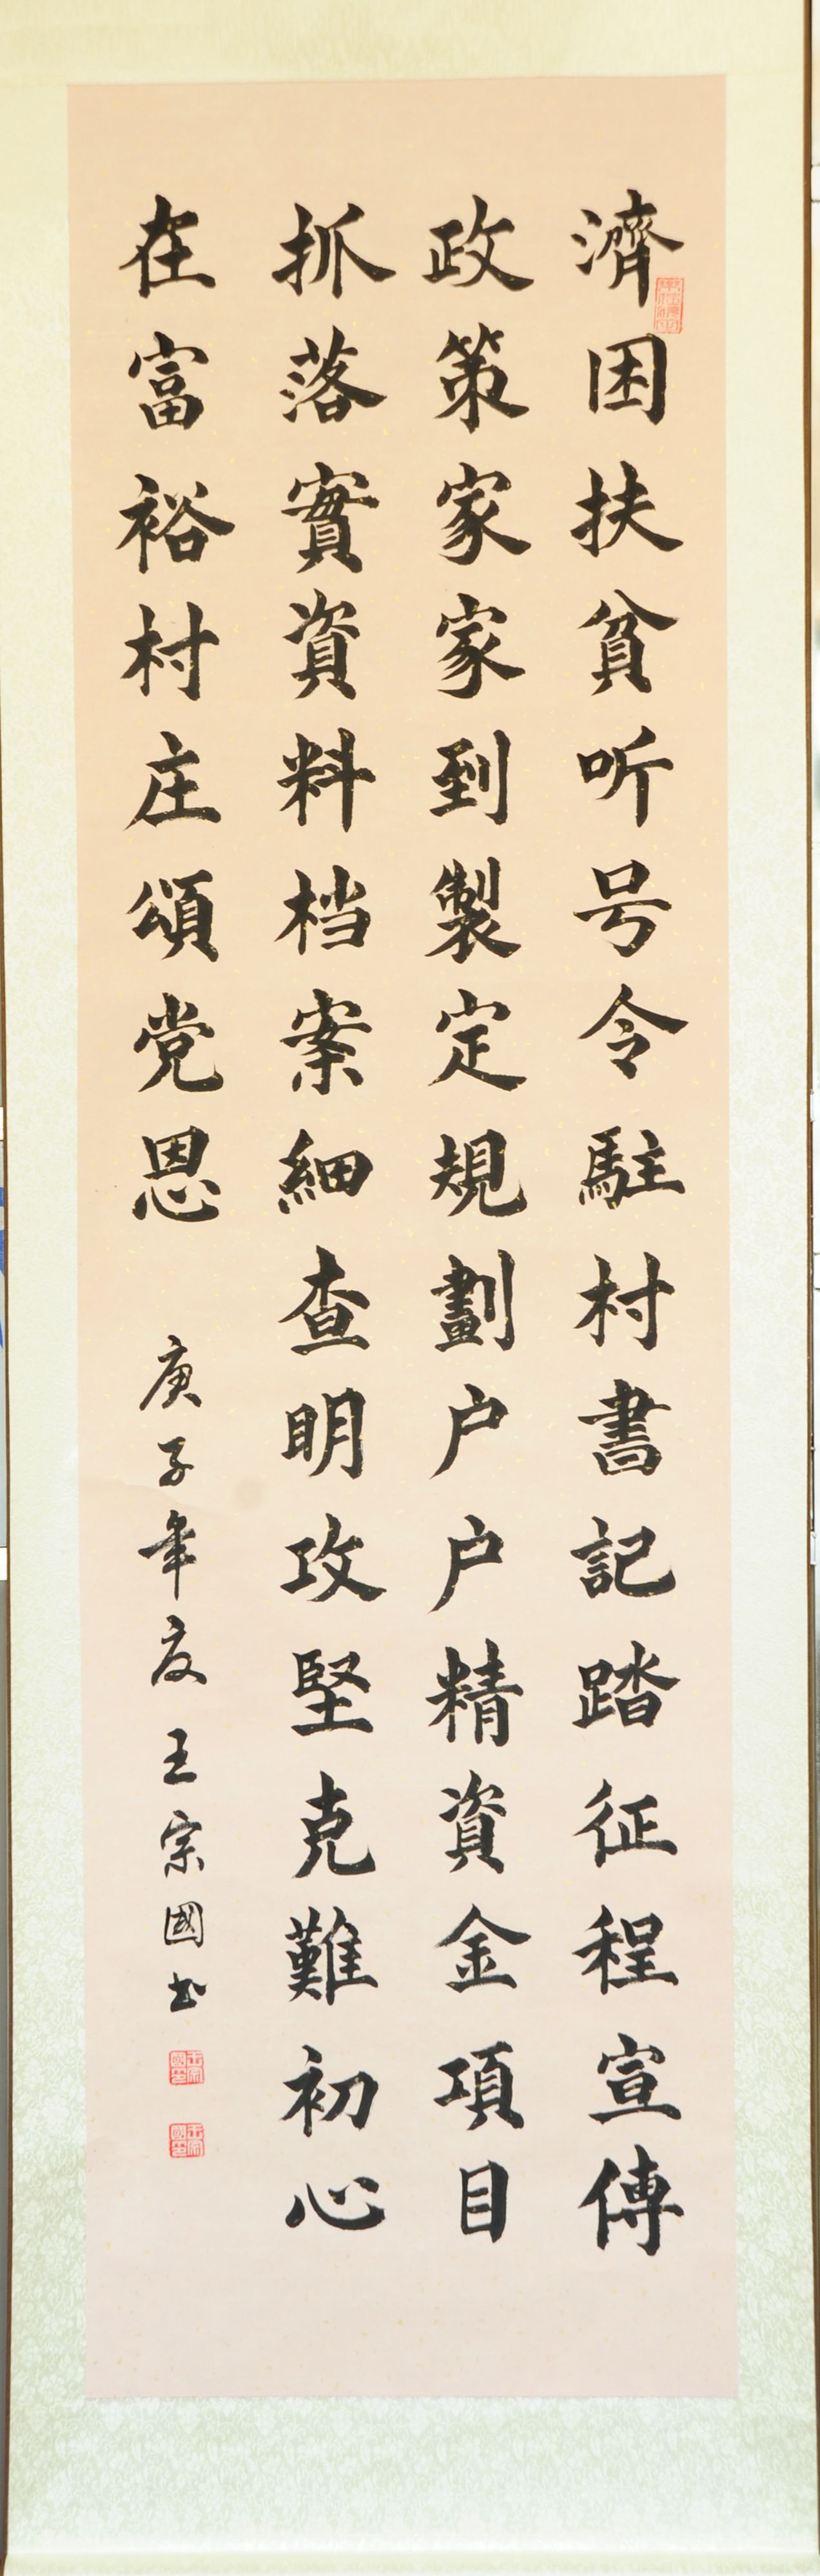 濟困扶貧听号令駐村書記踏征程宣傳
政策家家到製定規劃户户精資金項目
抓落實資料档案細查明攻堅克難初心
在富裕村庄頌党恩
庚子年夏王宗國书
王宗國印
王宗國印